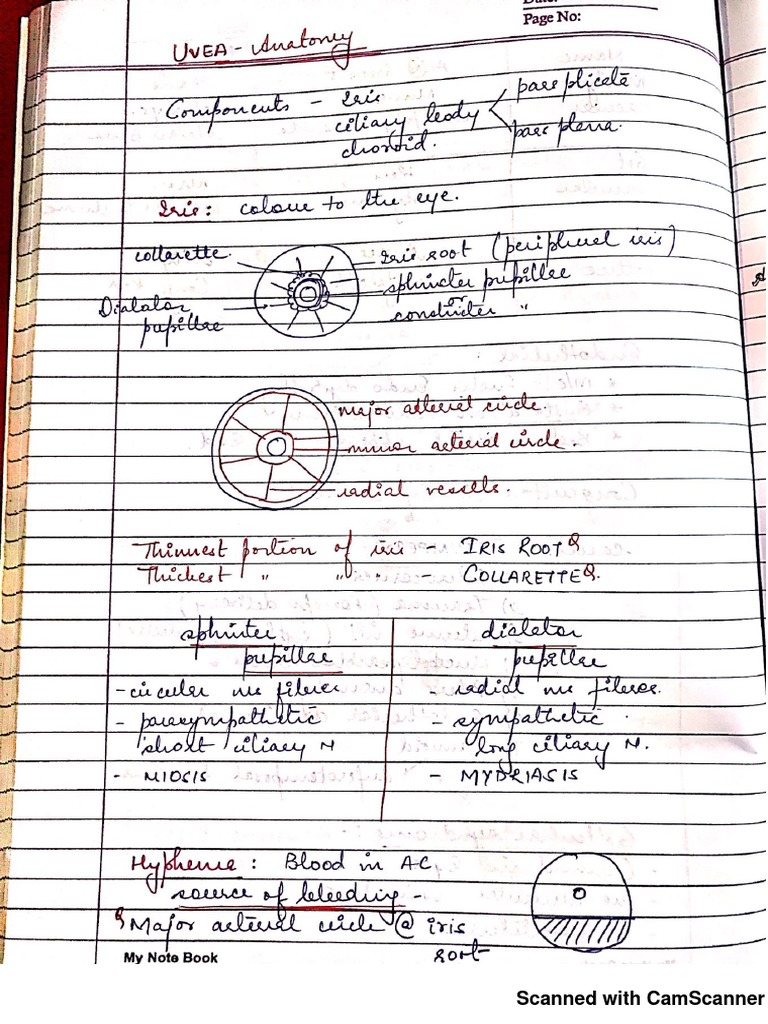 Page No:
UVEA - Anatomy
Components - Iris
ciliary body < pars plicata
pars plana.
choroid.
Iris: colour to the eye.
collarette
Iris root (peripheral iris)
sphincter pupillae
or
constricter "
Dialator
pupillae
major arterial circle.
minor arterial circle.
radial vessels.
Thinnest portion of iris - IRIS ROOT
Thickest " " - COLLARETTE
sphincter pupillae
dialator pupillae
- circular ms fibres
- radial ms fibres.
- parasympathetic
- sympathetic
short ciliary N
long ciliary N.
- MIOSIS
- MYDRIASIS
Hyphema: Blood in AC
source of bleeding -
Major arterial circle @ iris
root
My Note Book
Scanned with CamScanner